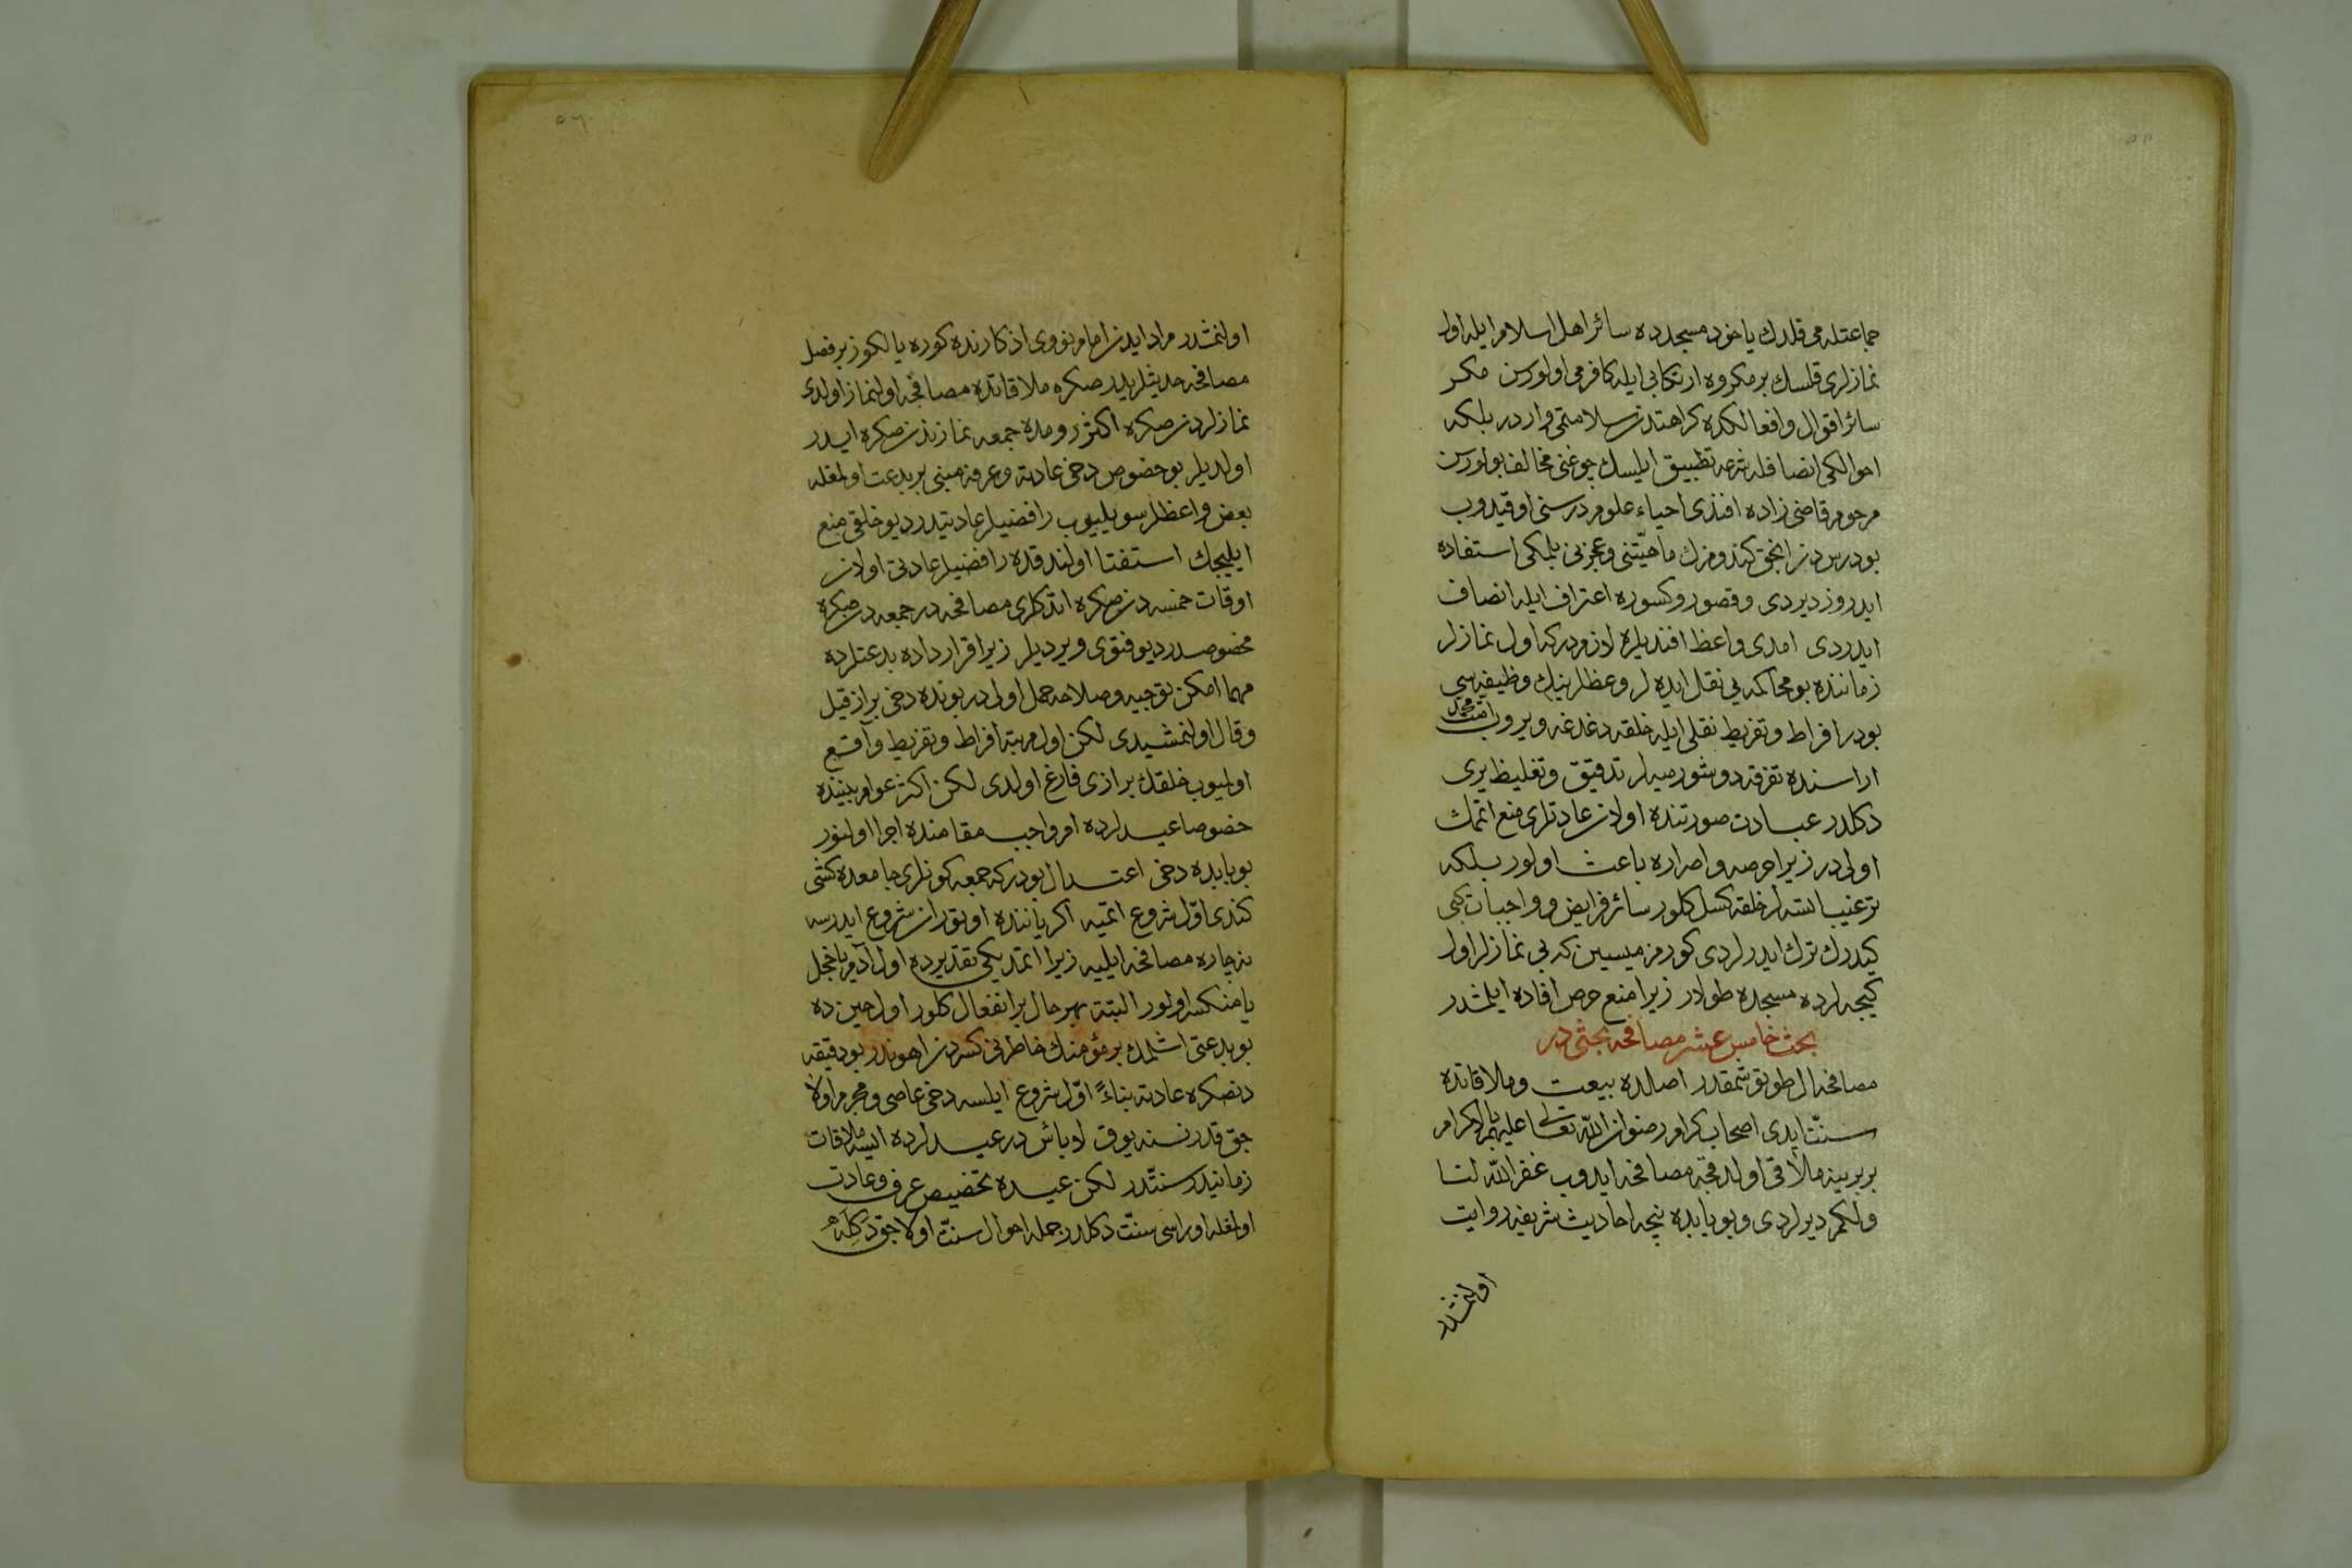 جماعتله می قلدك یاخود مسجدده سائر اهل اسلام ایله اول
نمازلری قلسك بر مكروه ارتكابی ایله كافر می اولورسن مكر
سائر اقوال و افعالكده كراهتدن سلامتمی واردر بلكه
احوالكی انصافله شرعه تطبیق ایلسك چوغنی مخالف بولورسن
مرحوم قاضی زاده افندی احیاء علوم درسنی اوقیدوب
بو درسدن انجق كندومزك ماهیتنی و عجزنی بلمكی استفاده
ایدروز دیردی و قصور و كسوره اعتراف ایله انصاف
ایدردی امدی واعظ افندیلره لازمدر كه اول نمازلر
زماننده بو محاكمه یی نقل ایده لر وعظلرینك وظیفه سی
بودر افراط و تفریط نقلی ایله خلقه دغدغه ویروب امت محمد
اراسنده تفرقه دوشورمیه لر تدقیق و تغلیظ یری
دكلدر عبادت صورتنده اولان عادتلری منع اتمك
اولی در زیرا حرصه و اصراره باعث اولور بلكه
ترغیب اتسه لر خلقه كسل كلور سائر فرایض و واجبات كبی
كیدرك ترك ایدرلردی كورمزمیسین كه بی نمازلر اول
كیجه لرده مسجده طولار زیرا منع حرص افاده ایلمشدر
بحث خامس عشر مصافحه بحثی در
مصافحه ال طوتوشمقدر اصلده بیعت و ملاقاتده
سنت ایدی اصحاب كرام رضوان الله تعالی علیهم الاكرام
بربرینه ملاقی اولدقجه مصافحه ایدوب غفر الله لنا
ولكم دیرلردی و بو بابده نیجه احادیث شریفه روایت
اولنمشدر
اولنمشدر مراد ایدن امام نووی اذكارنده كوره یالكوز بر فصل
مصافحه حدیثلریدر صكره ملاقاتده مصافحه اولنماز اولدی
نمازلردن صكره اكثر رومده جمعه نمازندن صكره ایدر
اولدیلر بو خصوص دخی عادته و عرفه مبنی بر بدعت اولمغله
بعض واعظلر سویلیوب رافضیلر عادتیدر دیو خلقی منع
ایلیجك استفتا اولندقده رافضیلر عادتی اولان
اوقات خمسه دن صكره اتدكلری مصافحه در جمعه دن صكره
مخصوصدر دیو فتوی ویردیلر زیرا قرارداده بدعتلرده
مهما امكن توجیه و صلاحه حمل اولی در بونده دخی براز قیل
و قال اولنمشیدی لكن اول مرتبه افراط و تفریط واقع
اولمیوب خلقك برازی فارغ اولدی لكن اكثر عوام بیننده
خصوصا عیدلرده امر واجب مقامنده اجرا اولنور
بو بابده دخی اعتدال بودر كه جمعه كونلری جامعده كشی
كندی اول شروع اتمیه اكر یاننده اوتوران شروع ایدرسه
نه چاره مصافحه ایلیه زیرا اتمدیكی تقدیرده اول آدم یا خجل
یا منكسر اولور البته بهر حال بر انفعال كلور اول حین ده
بو بدعتی اشلمك بر مؤمنك خاطرنی كسردن اهوندر بو دقیقه
دنصكره عادته بناءً اول شروع ایلسه دخی عاصی و مجرم اولا
جق قدر نسنه یوق لا بأس در عیدلرده ایسه ملاقات
زمانیدر سنتدر لكن عیده تخصیص عرف و عادت
اولمغله اوراسی سنت دكلدر جمله احوال سنت اولاجق دكله